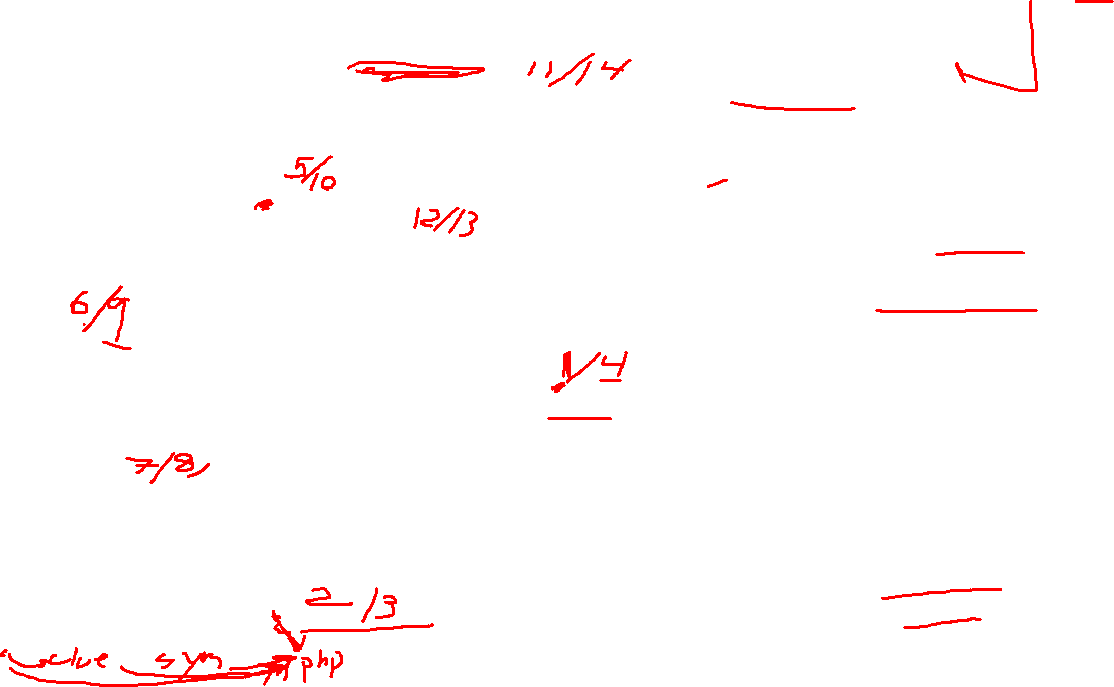 11/14
5/10
12/13
6/9
1/4
7/8
2/3
sym php